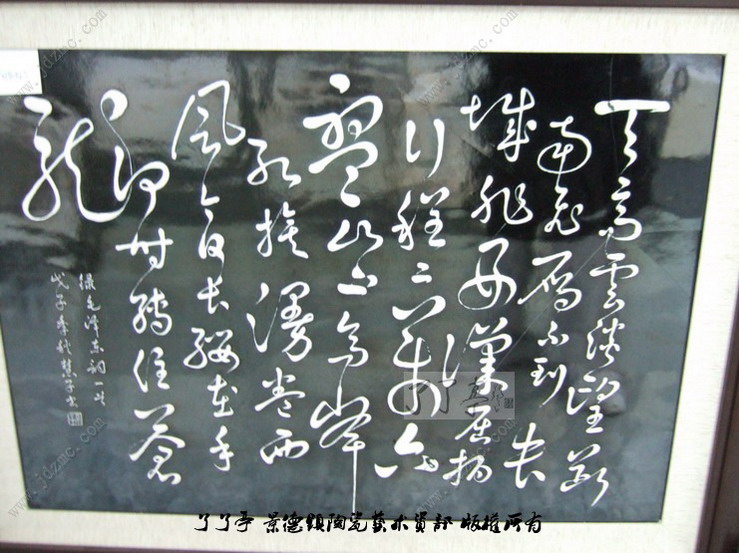 天高雲淡望斷
南飛雁不到長
城非好漢屈指
行程二萬六
盤山上高峰
紅旗漫卷西
風今日長纓在手
何時縛住蒼
龍
錄毛澤東詞一首
戊子年秋
www.jdzmc.com
了了亭 景德鎮陶瓷藝术貿部 版權所有